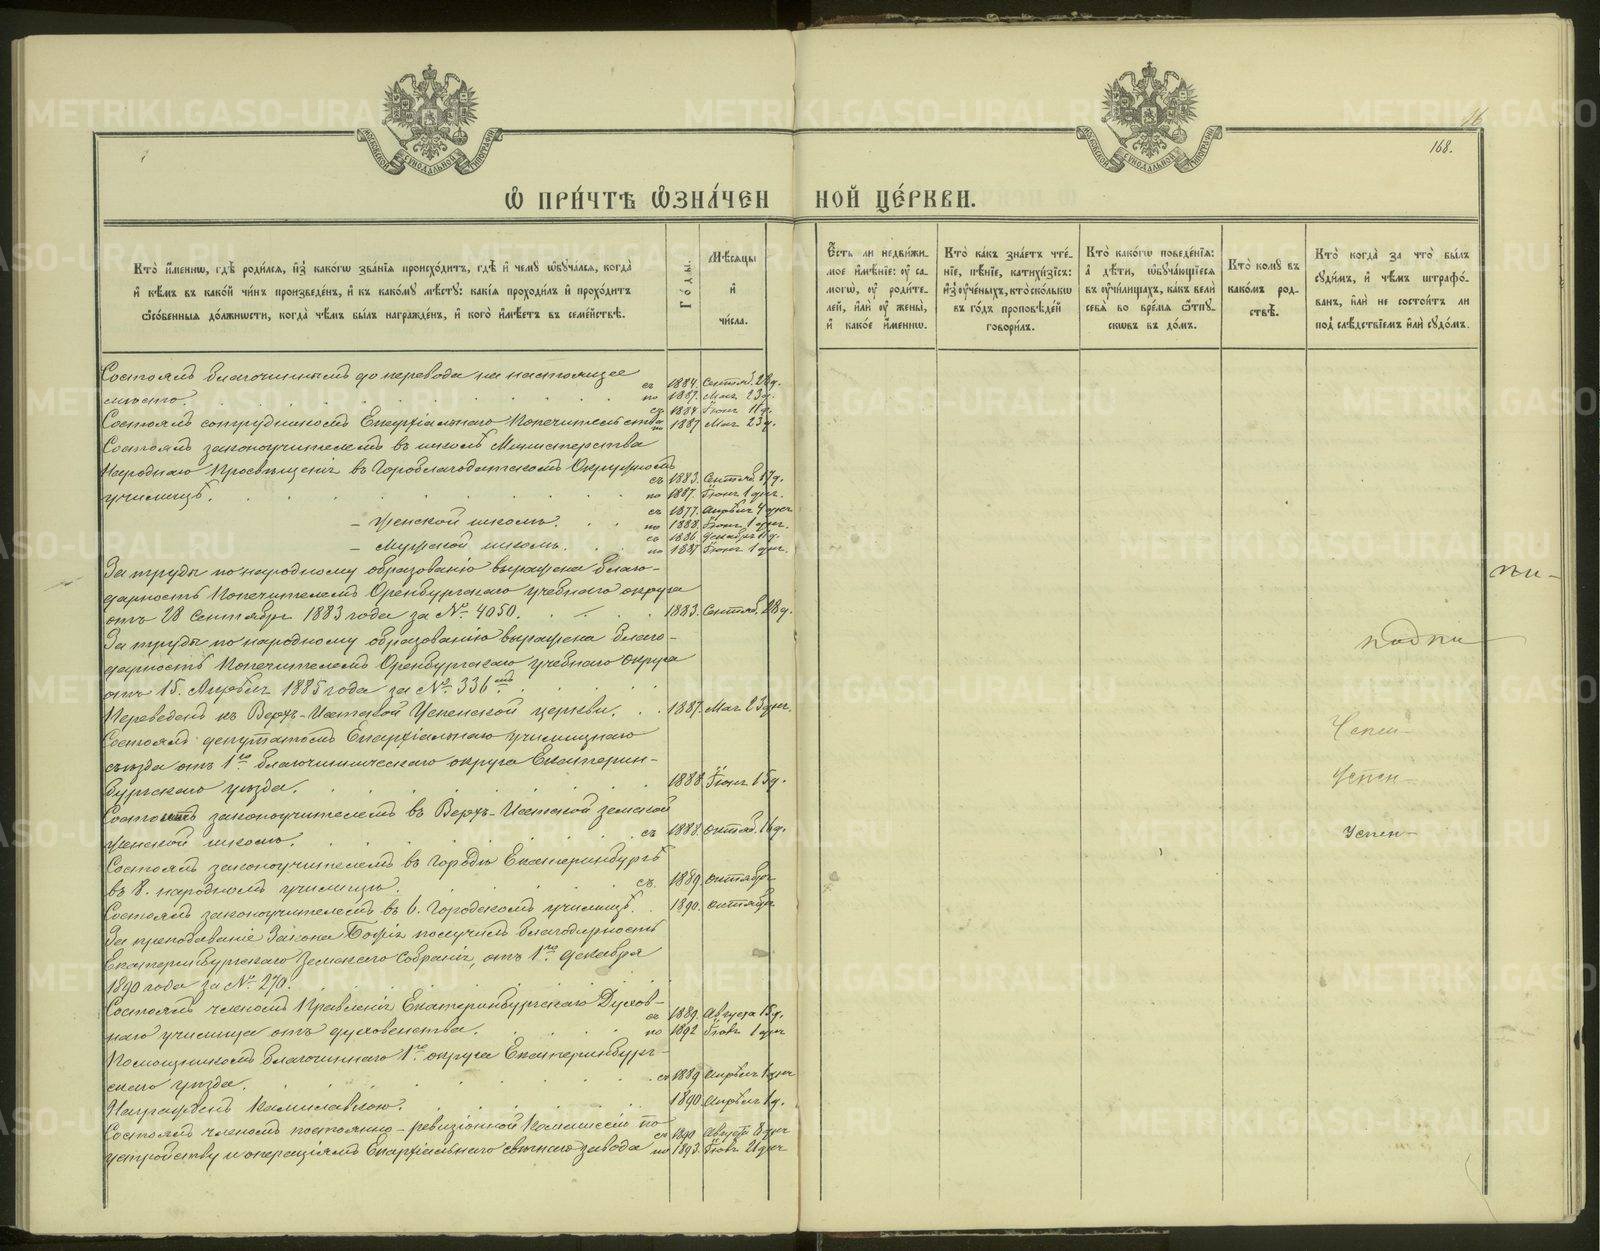 168.
Ѡ ПРИ́ЧТѢ ѠЗНА́ЧЕН НОЙ ЦЕ́РКВИ.
Кто̀ и҆́менѡ, гдѣ̀ роди́лсѧ, и҆з̾ како́гѡ зва́нїѧ происхо́дитъ, гдѣ̀ и҆ чемꙋ̀ ѡ҆бꙋча́лсѧ, когда̀
и҆ кѣ́мъ въ како́й чи́нъ произведе́нъ, и҆ къ како́мꙋ мѣ́стꙋ: какі́ѧ проходи́лъ и҆ прохо́дитъ
ѻ҆со́бенныѧ до́лжнѡсти, когда̀ чѣ́мъ бы́лъ награжде́нъ, и҆ кого̀ и҆мѣ́етъ въ семе́йствѣ.
Го́ды.
Мѣ́сѧцы
и҆
чи́сла.
Є҆́сть ли недви́жи-
мое и҆мѣ́нїе: ᲂу҆ са-
могѡ̀, ᲂу҆ роди́те-
лей, и҆лѝ ᲂу҆ жены̀,
и҆ како́е и҆́меннѡ.
Кто̀ ка́къ зна́етъ чте́-
нїе, пѣ́нїе, катихи́зїсъ:
и҆з̾ ᲂу҆че́ныхъ, кто̀ ско́лькѡ
въ го́дъ про́повѣдей
говори́лъ.
Кто̀ како́гѡ поведе́нїѧ:
а҆ дѣ́ти, ѡ҆бꙋча́ющїесѧ
въ ᲂу҆чи́лищахъ, ка́къ велѝ
себѧ̀ во вре́мѧ ѿпꙋ-
скѡвъ въ до́мъ.
Кто̀ комꙋ̀ въ
како́мъ род-
ствѣ̀.
Кто̀ когда̀ за что̀ бы́лъ
сꙋди́мъ, и҆ чѣ́мъ штрафо́-
ванъ, и҆лѝ не состои́тъ ли
под̾ слѣ́дствїемъ и҆лѝ сꙋдо́мъ.
Состоялъ благочиннымъ до перевода на настоящее
мѣсто. съ 1884. Сентяб. 28 д. по 1887. Мая 23 д.
Состоялъ сотрудникомъ Епархіальнаго Попечительства съ 1884. Іюня 11 д. по 1887 Мая 23 д.
Состоялъ законоучителемъ въ школѣ Министерства
Народнаго Просвѣщенія въ Гороблагодатскомъ Окружномъ
училищѣ. съ 1883. Сентяб. 17 д. по 1887. Іюня 1 дня.
– Женской школѣ. съ 1877. Апрѣля 4 дня по 1888. Іюня 1 дня.
– Мужской школѣ. съ 1886 Декабря 11 д. по 1887 Іюня 1 дня.
За труды по народному образованію выражена благо-
дарность Попечителемъ Оренбургскаго учебнаго округа
отъ 28 Сентября 1883 года за № 4050. 1883. Сентяб. 28 д.
За труды по народному образованію выражена благо-
дарность Попечителемъ Оренбургскаго учебнаго Округа
отъ 15. Апрѣля 1885 года за № 336
Переведенъ къ Верхъ-Исетской Успенской церкви. 1887. Мая 23 дня.
Состоялъ депутатомъ Епархіальнаго училищнаго
съѣзда отъ 1го благочинническаго округа Екатерин-
бургскаго уѣзда. 1888 Іюня 15 д.
Состоитъ законоучителемъ въ Верхъ-Исетской земской
женской школѣ. съ 1888. Октяб. 16 д.
Состоялъ законоучителемъ въ городѣ Екатеринбургѣ
въ 8. народномъ училищѣ. съ. 1889. Октября
Состоялъ законоучителемъ въ 6. Городскомъ училищѣ. 1890. Октября
За преподаваніе Закона Божія получилъ благодарность
Екатеринбургскаго Земскаго Собранія, отъ 1го декабря
1890 года за № 270.
Состоялъ членомъ Правленія Екатеринбургскаго Духов-
наго училища отъ духовенства. съ 1889. Августа 15 д. по 1892 Іюня 1 дня
Помощникомъ благочиннаго 1го округа Екатеринбург-
скаго уѣзда. съ 1889 Апрѣля 1 дня
Награжденъ Камилавкою. 1890. Апрѣля 1 д.
Состоялъ членомъ постоянно-ревизіонной Коммиссіи по съ 1890 Августа 8 дня
устройству и операціямъ Епархіальнаго свѣчнаго завода по 1893. Іюня 21 дня
Успен-
Успен-